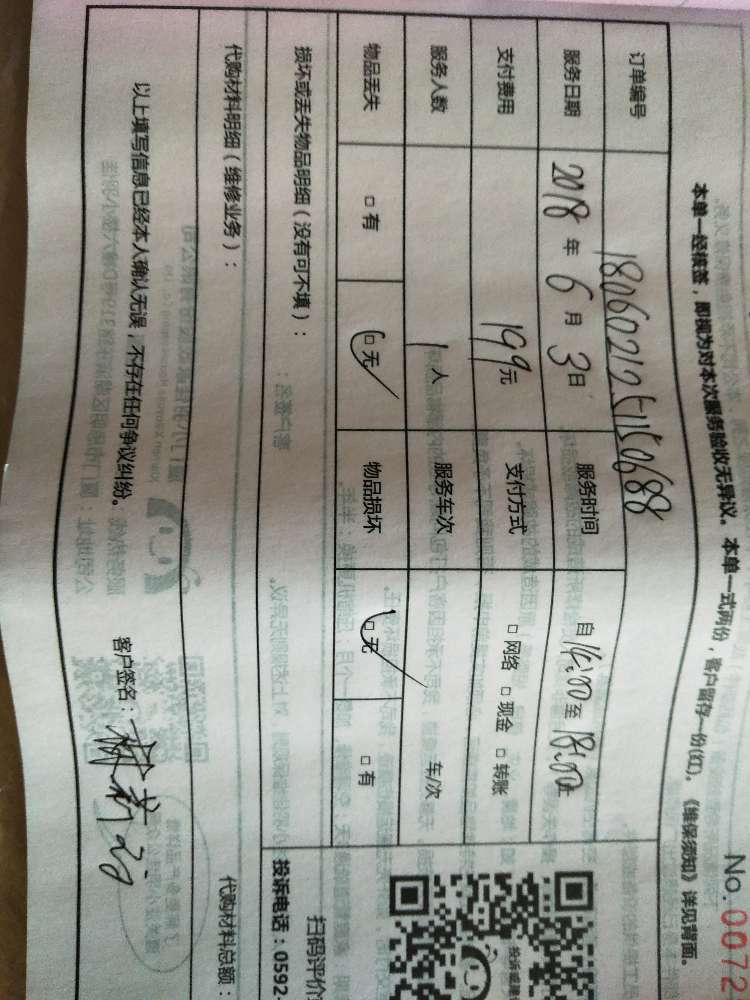 No.0072
本单一经核签，即视为对本次服务验收无异议。本单一式两份，客户留存一份(红)。《维保须知》详见背面。
订单编号 1806021251150688
服务日期 2018年6月3日 服务时间 自14:00至18:00止
支付费用 199元 支付方式 □网络 □现金 □转账
服务人数 1人 服务车次 车/次
物品丢失 □有 □无 物品损坏 □无 □有
损坏或丢失物品明细（没有可不填）：
代购材料明细（维修业务）：
代购材料总额：
以上填写信息已经本人确认无误，不存在任何争议纠纷。
客户签名：
扫码评价
投诉电话：0592-